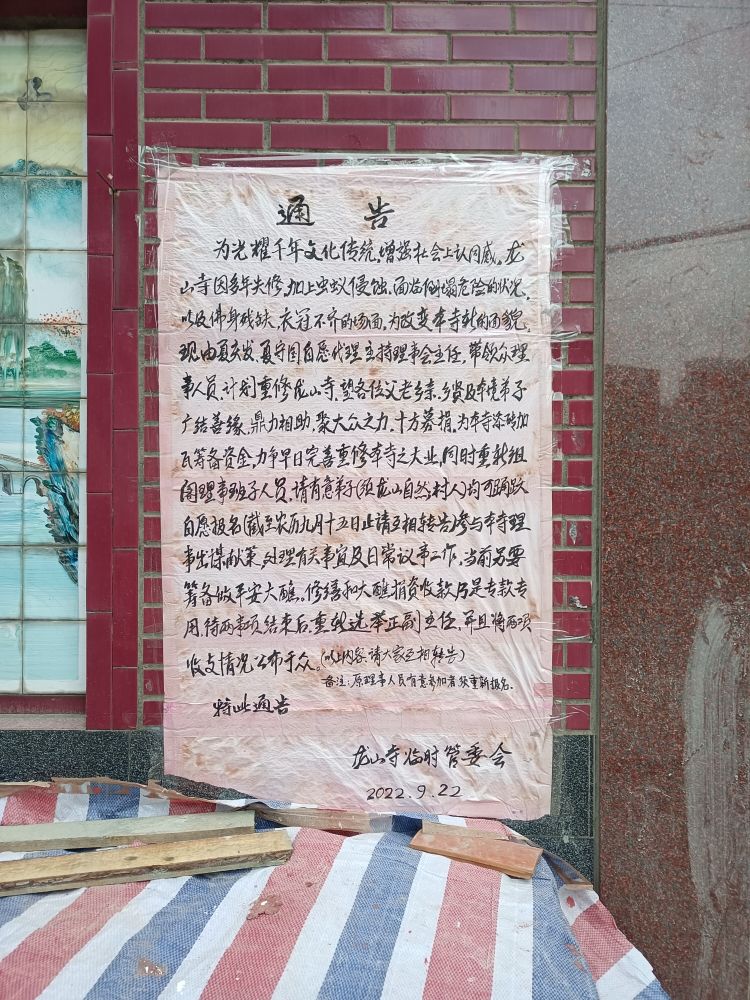 通告
为光耀千年文化传统,增强社会上认同感。龙
山寺因多年失修,加上虫蚁侵蚀,面临倒塌危险的状况,
以及佛身残缺,衣冠不齐的场面,为改变本寺新的面貌,
现由夏夹发、夏守国自愿代理主持理事会主任,带领众理
事人员,计划重修龙山寺,望各位父老乡亲,乡贤及本境弟子
广结善缘,鼎力相助,聚大众之力,十方募捐,为本寺添砖加
瓦筹备资金,力争早日完善重修本寺之大业,同时重新组
阁理事班子人员,请有意弟子(须龙山自然村人)均可踊跃
自愿报名(截至农历九月十五日止请互相转告)参与本寺理
事出谋献策,处理有关事宜及日常议事工作,当前另要
筹备做平安大醮。修缮和大醮捐资收款乃是专款专
用,待两事项结束后,重新选举正副主任,并且将两项
收支情况公布于众。(以上内容请大家互相转告)
备注:原理事人员有意参加者须重新报名。
特此通告
龙山寺临时管委会
2022.9.22